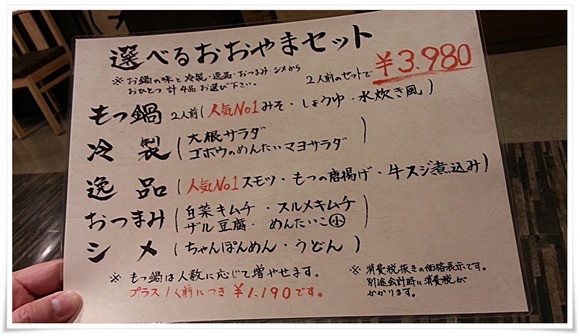 選べるおおやまセット
※お鍋の味と冷製・逸品・おつまみ・シメから
おひとつ計4品お選び下さい。
2人前のセットで ¥3.980
もつ鍋 2人前(人気No1みそ・しょうゆ・水炊き風)
冷製(大根サラダ
ゴボウのめんたいマヨサラダ)
逸品(人気No1スモツ・もつの唐揚げ・牛スジ煮込み)
おつまみ(白菜キムチ・スルメキムチ
ザル豆腐・めんたいこ小)
シメ(ちゃんぽんめん・うどん)
※もつ鍋は人数に応じて増やせます。
プラス1人前につき¥1.190です。
※消費税抜きの価格表示です。
別途会計時に消費税が
かかります。